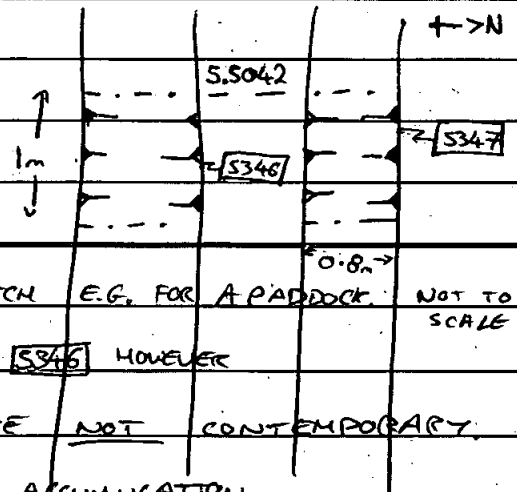 +->N
S.5042
5347
1m
5346
0.8m
E.G. FOR A PADDOCK. NOT TO
SCALE
5346 HOWEVER
NOT CONTEMPORARY.